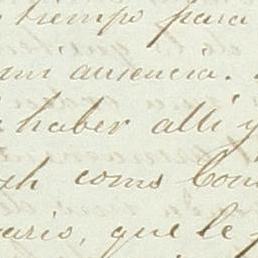 tiempo para
mi ausencia.
haber alli y
como Com
ario, que le